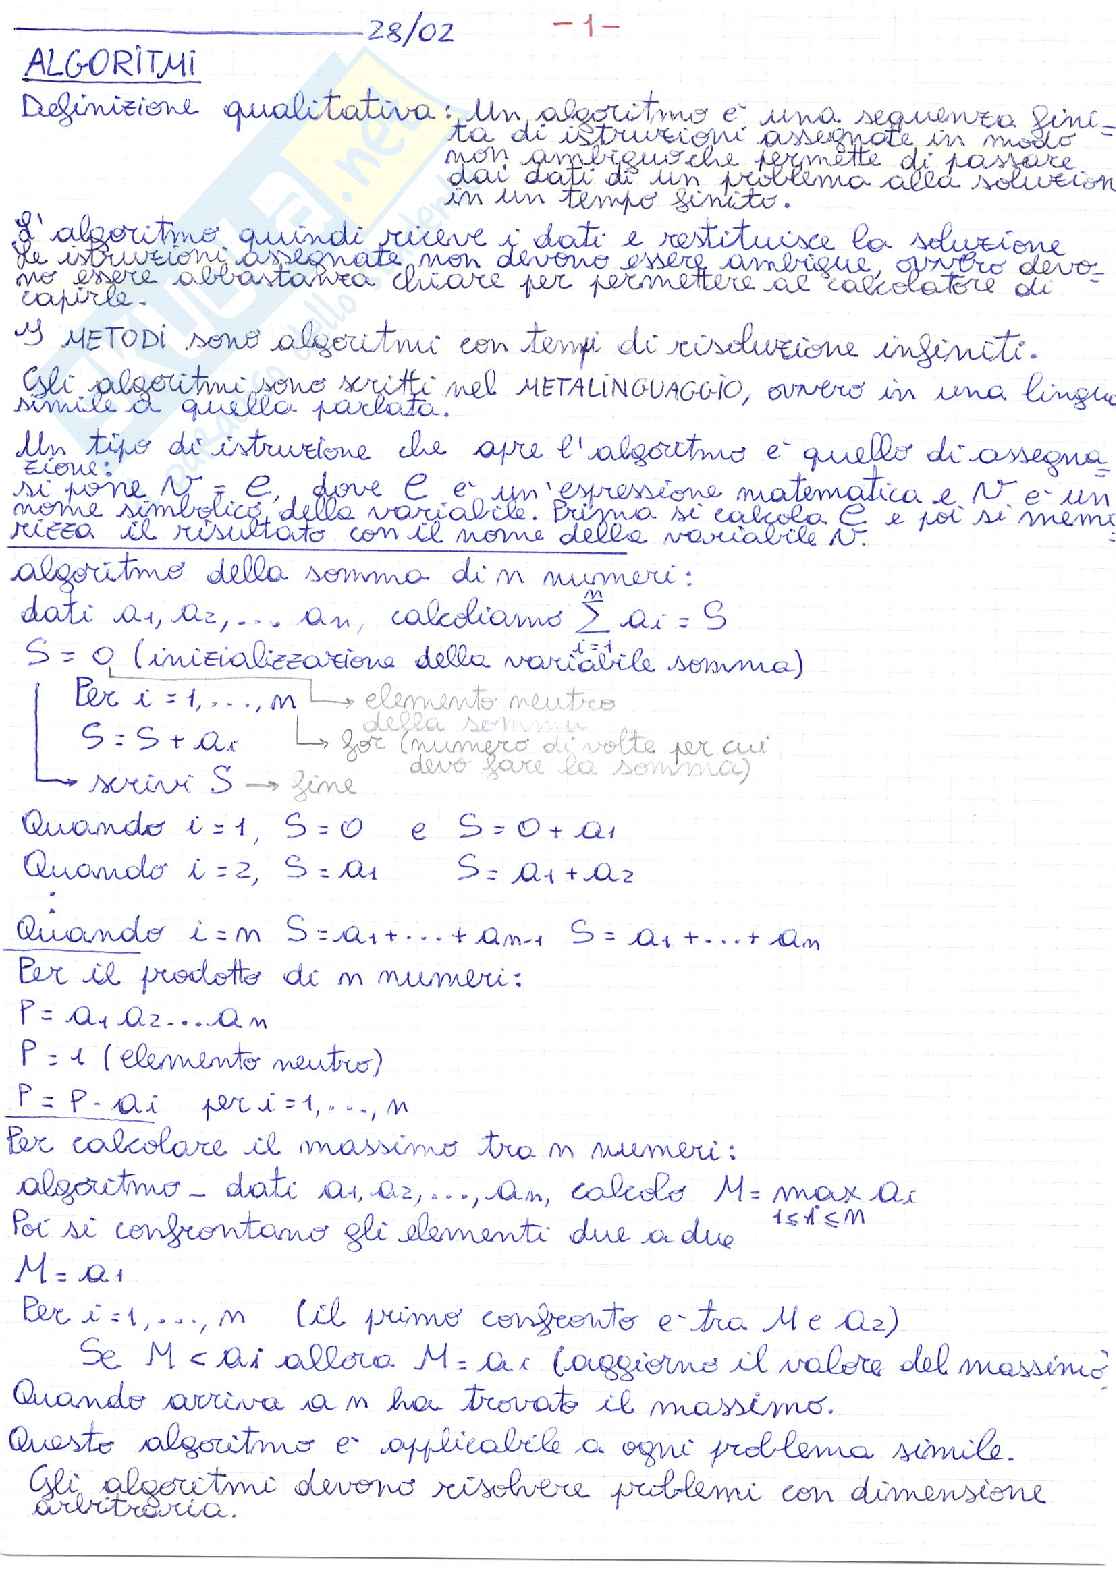 28/02 -1-
ALGORITMI
Definizione qualitativa: Un algoritmo è una sequenza fini=
ta di istruzioni assegnate in modo
non ambiguo che permette di passare
dai dati di un problema alla soluzion
in un tempo finito.
L'algoritmo quindi riceve i dati e restituisce la soluzione
Le istruzioni assegnate non devono essere ambigue, ovvero devo=
no essere abbastanza chiare per permettere al calcolatore di
capirle.
I METODI sono algoritmi con tempi di risoluzione infiniti.
Gli algoritmi sono scritti nel METALINGUAGGIO, ovvero in una lingua
simile a quella parlata.
Un tipo di istruzione che apre l'algoritmo è quello di assegna=
zione:
si pone v = e, dove e è un'espressione matematica e v è un
nome simbolico della variabile. Prima si calcola e e poi si memo=
rizza il risultato con il nome della variabile v.
algoritmo della somma di n numeri:
dati a1, a2, ... an, calcoliamo ∑ⁿᵢ₌₁ ai = S
S = 0 (inizializzazione della variabile somma)
Per i = 1, ..., n → elemento neutro
della somma
S = S + ai → for (numero di volte per cui
devo fare la somma)
→ scrivi S → fine
Quando i = 1, S = 0 e S = 0 + a1
Quando i = 2, S = a1 S = a1 + a2
:
Quando i = n S = a1 + ... + an-1 S = a1 + ... + an
Per il prodotto di n numeri:
P = a1 a2 ... an
P = 1 (elemento neutro)
P = P · ai per i = 1, ..., n
Per calcolare il massimo tra n numeri:
algoritmo - dati a1, a2, ..., an, calcolo M = max ai
1 ≤ i ≤ n
Poi si confrontano gli elementi due a due
M = a1
Per i = 1, ..., n (il primo confronto è tra M e a2)
Se M < ai allora M = ai (aggiorno il valore del massimo)
Quando arriva a n ha trovato il massimo.
Questo algoritmo è applicabile a ogni problema simile.
Gli algoritmi devono risolvere problemi con dimensione
arbitraria.